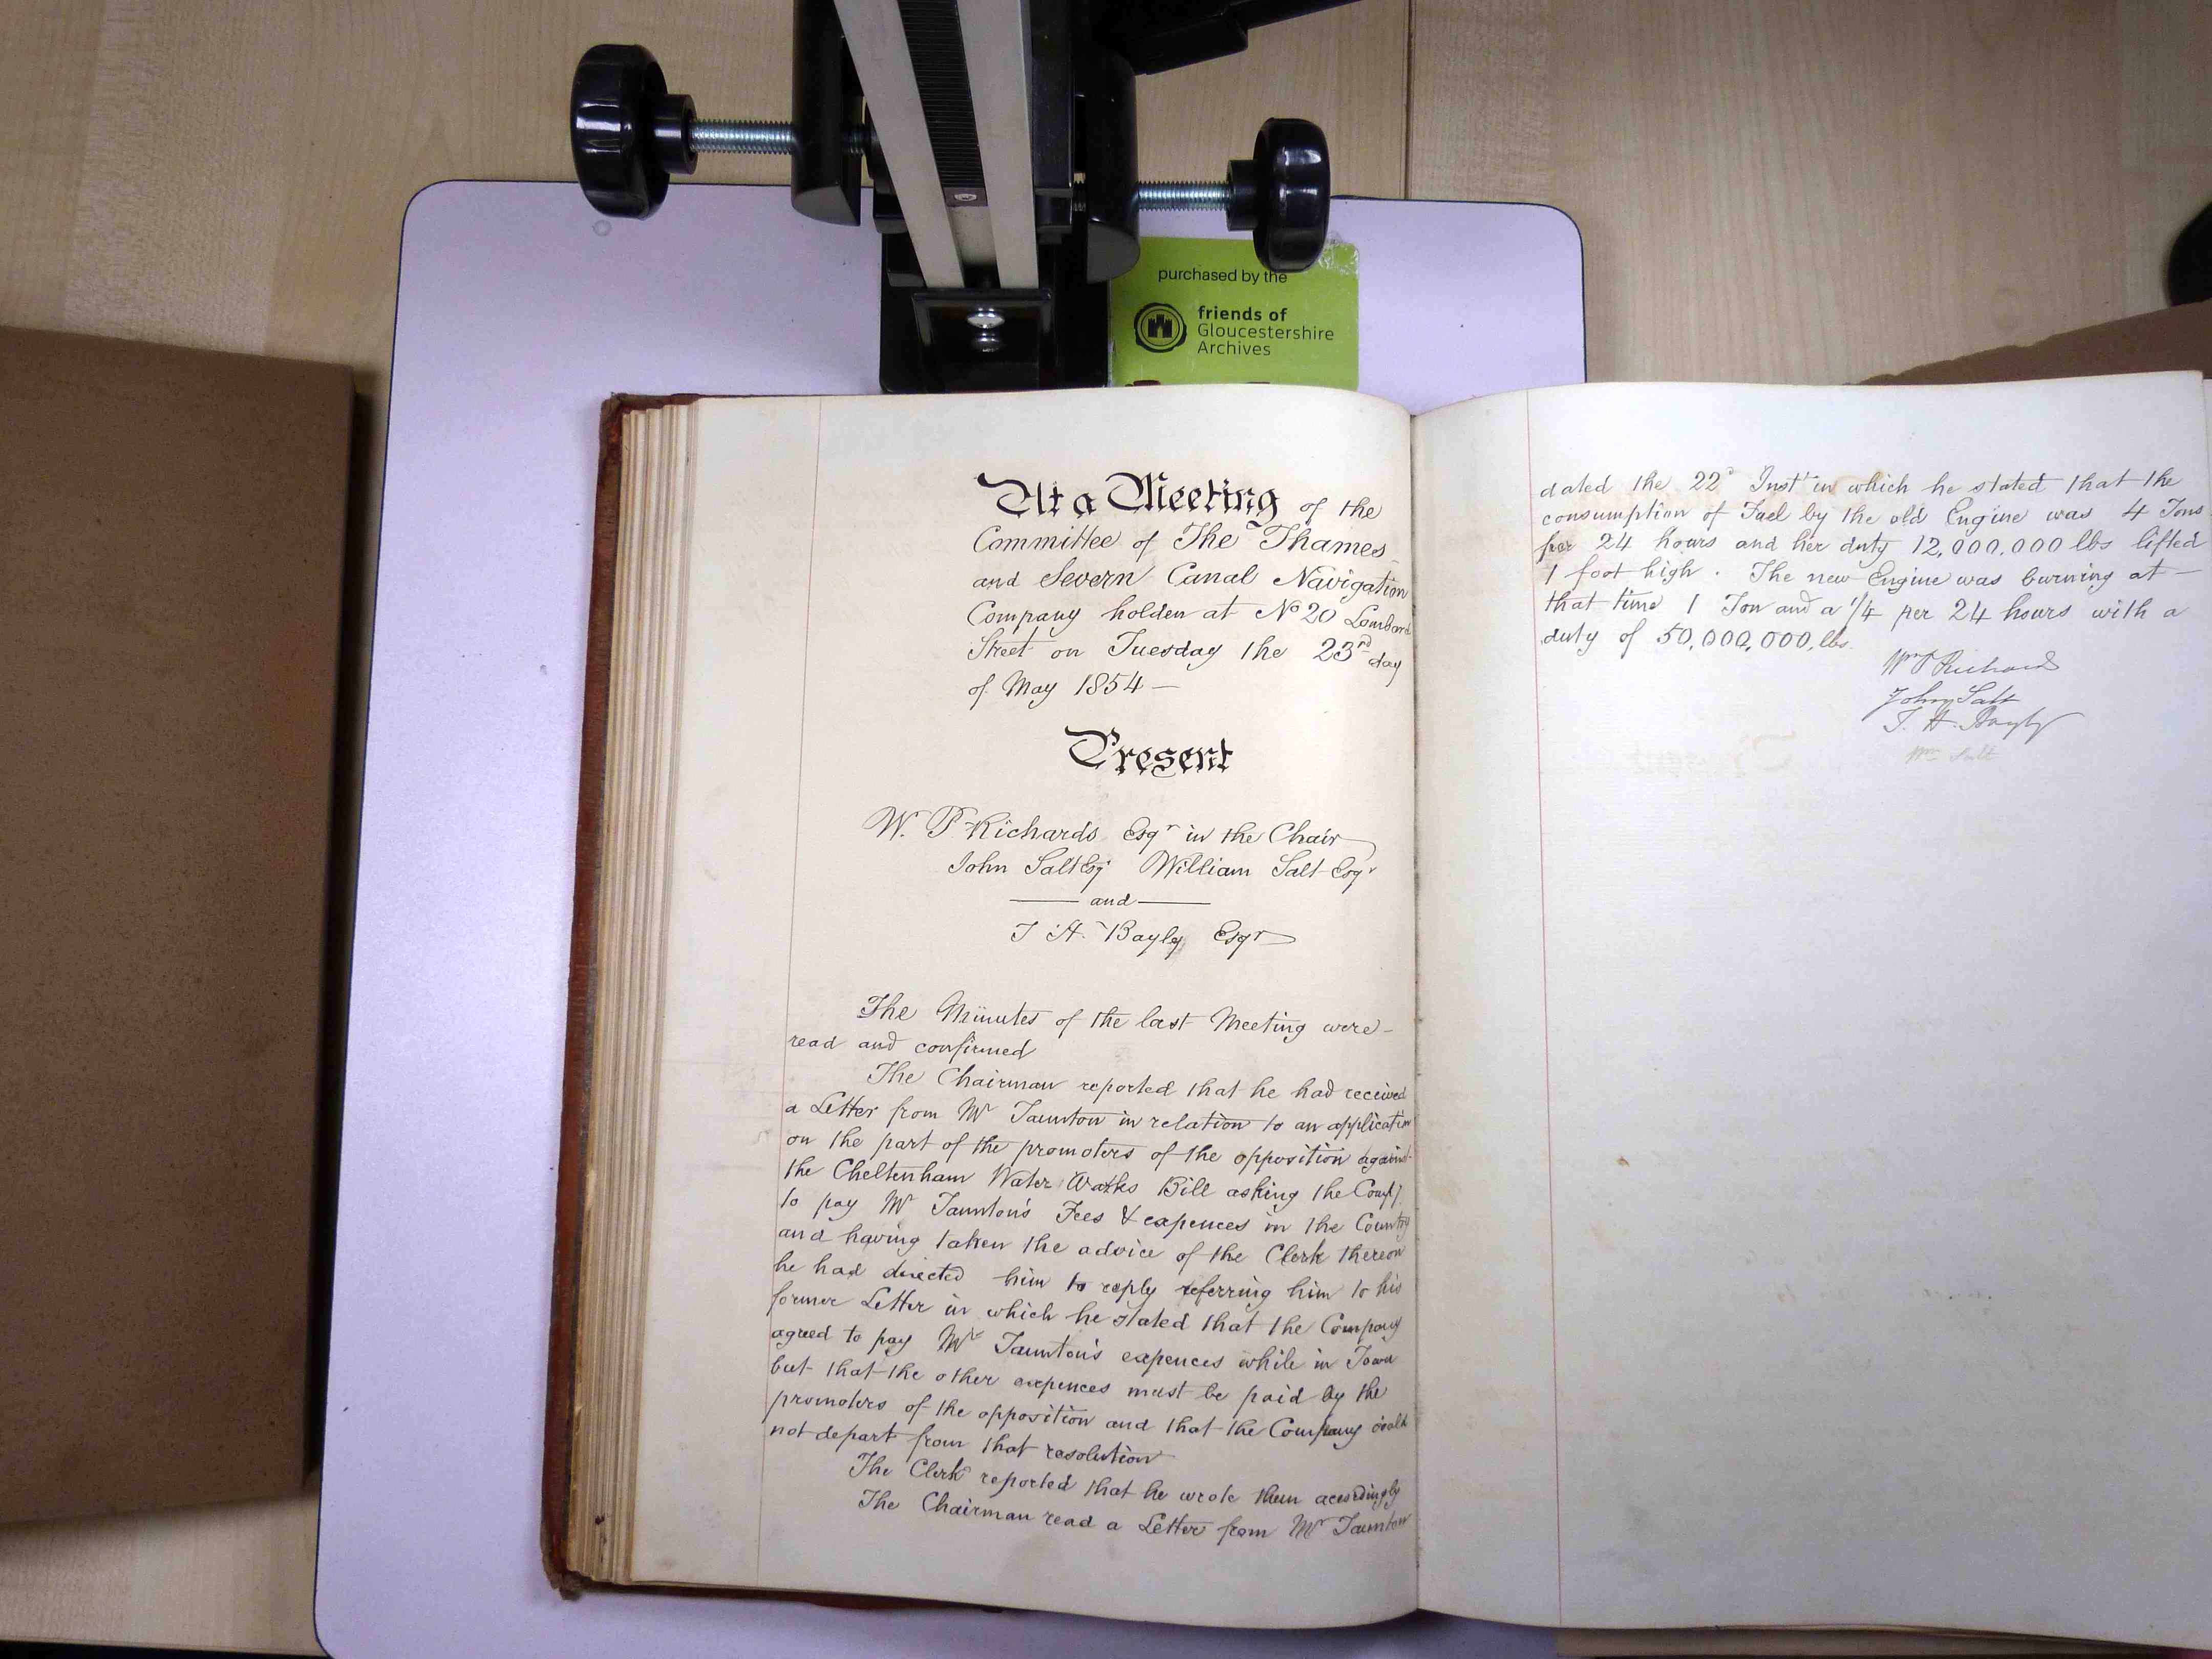 purchased by the
friends of
Gloucestershire
Archives
At a Meeting of the
Committee of The Thames
and Severn Canal Navigation
Company holden at No 20 Lombard
Street on Tuesday the 23rd day
of May 1854 —
Present
W. P. Richards Esqr in the Chair
John Salt Esq William Salt Esqr
— and —
T. H. Bayly Esqr
The Minutes of the last Meeting were -
read and confirmed
The Chairman reported that he had received
a Letter from Mr Taunton in relation to an application
on the part of the promoters of the opposition against
the Cheltenham Water Works Bill asking the Compy
to pay Mr Taunton's Fees & expences in the Country
and having taken the advice of the Clerk thereon
he had directed him to reply referring him to his
former Letter in which he stated that the Company
agreed to pay Mr Taunton's expences while in Town
but that the other expences must be paid by the
promoters of the opposition and that the Company could
not depart from that resolution
The Clerk reported that he wrote them accordingly
The Chairman read a Letter from Mr Taunton
dated the 22d Inst in which he stated that the
consumption of Fuel by the old Engine was 4 Tons
per 24 hours and her duty 12,000.000 lbs lifted
1 foot high. The new Engine was burning at -
that time 1 Ton and a 1/4 per 24 hours with a
duty of 50,000,000, lbs.
Wm P Richards
John Salt
T. H. Bayly
Wm Salt